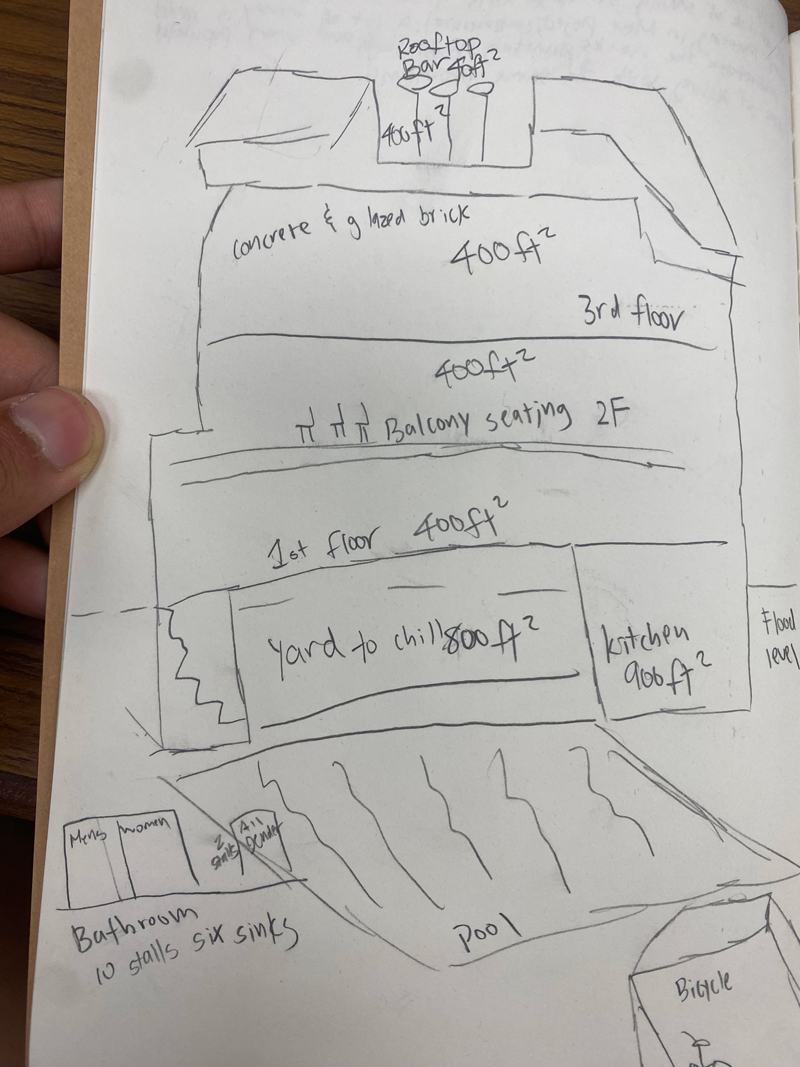 Rooftop
Bar 40ft²
400ft²
concrete & glazed brick
400ft²
3rd floor
400ft²
Balcony seating 2F
1st floor 400ft²
Yard to chill 800ft²
kitchen
900ft²
Flood
level
Mens
women
2
stalls
All
Gender
Bathroom
10 stalls six sinks
Pool
Bicycle